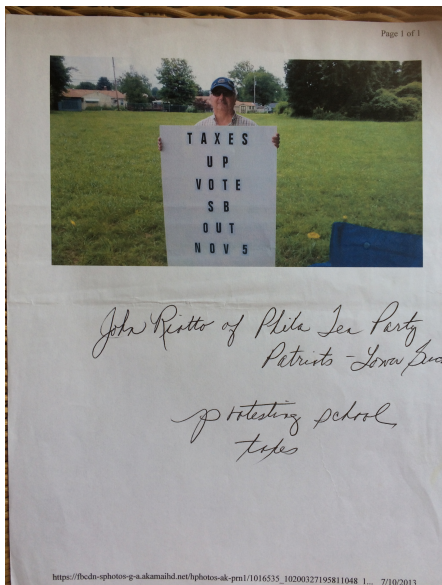 Page 1 of 1
TAXES
UP
VOTE
SB
OUT
NOV 5
John Riotto of Phila Tea Party
Patriots - Lower
protesting school
taxes
https://fbcdn-sphotos-g-a.akamaihd.net/hphotos-ak-prn1/1016535_10200327195811048_1... 7/10/2013